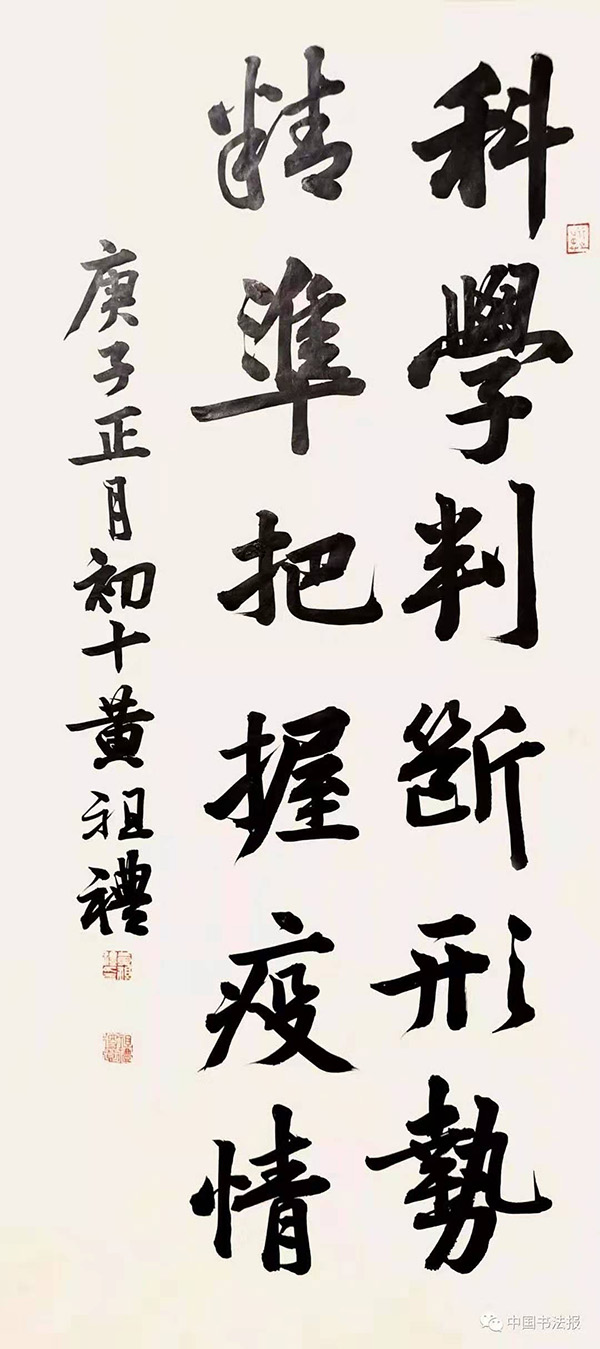 科學判斷形勢
精準把握疫情
庚子正月初十黃祖禮
中国书法报